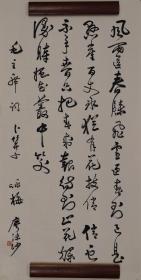 风雨送春归飞雪迎春到已是
悬崖百丈冰犹有花枝俏俏也
不争春只把春来报待到山花烂
漫时她在丛中笑
毛主席词 卜算子 咏梅 廖沫沙